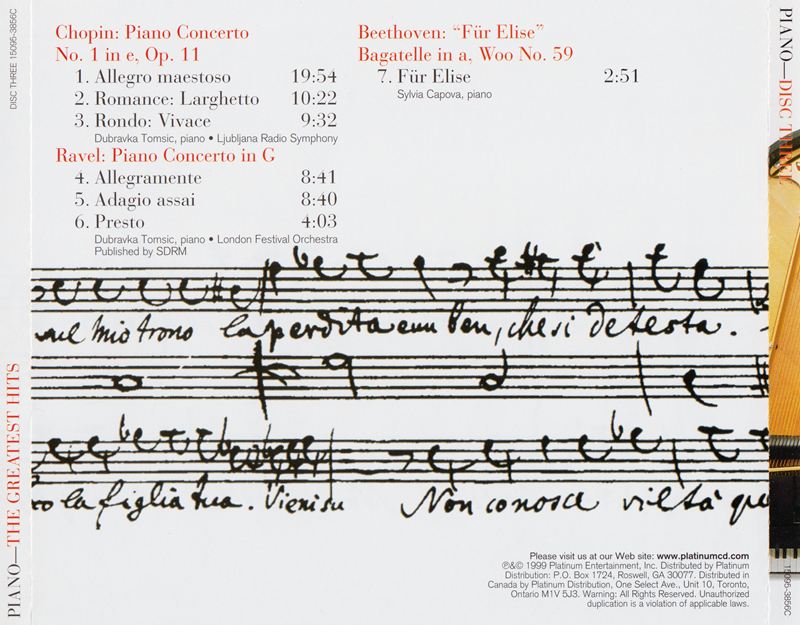 DISC THREE 15095-3856C
PIANO—THE GREATEST HITS
Chopin: Piano Concerto
No. 1 in e, Op. 11
1. Allegro maestoso 19:54
2. Romance: Larghetto 10:22
3. Rondo: Vivace 9:32
Dubravka Tomsic, piano • Ljubljana Radio Symphony
Ravel: Piano Concerto in G
4. Allegramente 8:41
5. Adagio assai 8:40
6. Presto 4:03
Dubravka Tomsic, piano • London Festival Orchestra
Published by SDRM
Beethoven: “Für Elise”
Bagatelle in a, Woo No. 59
7. Für Elise 2:51
Sylvia Capova, piano
mio trono la perdita e un ben, che si detesta.
la figlia tua. Vieni su Non conosce viltà
Please visit us at our Web site: www.platinumcd.com
℗&© 1999 Platinum Entertainment, Inc. Distributed by Platinum
Distribution: P.O. Box 1724, Roswell, GA 30077. Distributed in
Canada by Platinum Distribution, One Select Ave., Unit 10, Toronto,
Ontario M1V 5J3. Warning: All Rights Reserved. Unauthorized
duplication is a violation of applicable laws.
PIANO—DISC THREE
15095-3856C